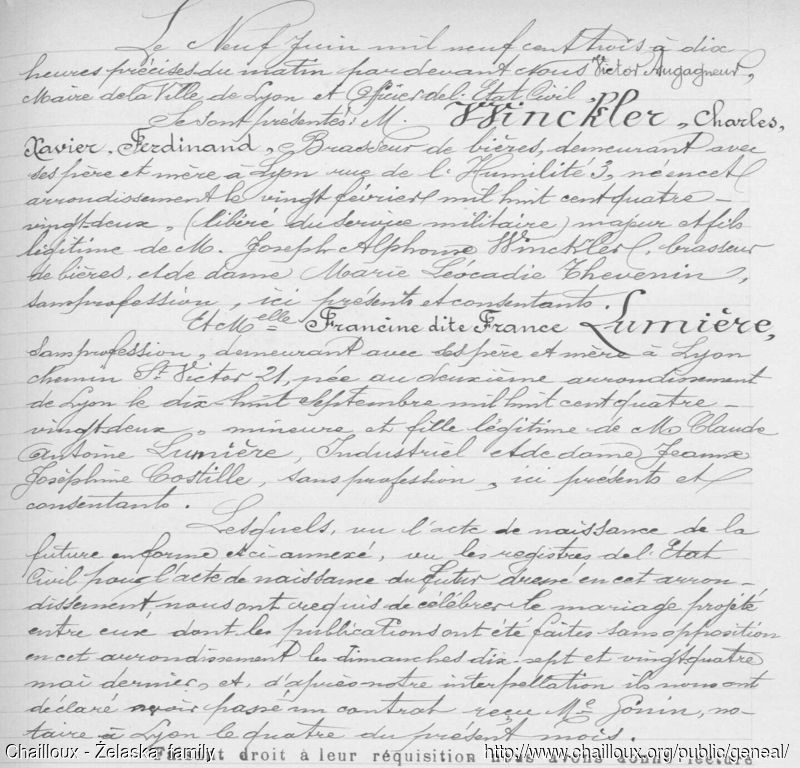 Le Neuf Juin mil neuf cent trois à dix
heures précises du matin pardevant Nous Victor Augagneur,
Maire de la Ville de Lyon et Officier de l'Etat Civil,
Se sont présentés: M. Winckler, Charles,
Xavier, Ferdinand, Brasseur de bières, demeurant avec
ses père et mère à Lyon rue de l'Humilité 3, né en cet
arrondissement le vingt février mil huit cent quatre-
vingt deux, (libéré du service militaire) majeur et fils
légitime de M. Joseph Alphonse Winckler, brasseur
de bières, et de dame Marie Léocadie Thevenin,
sans profession, ici présents et consentants.
Et Melle Francine dite France Lumière,
sans profession, demeurant avec ses père et mère à Lyon
chemin St Victor 21, née au deuxième arrondissement
de Lyon le dix-huit septembre mil huit cent quatre-
vingt deux, mineure et fille légitime de M. Claude
Antoine Lumière, Industriel et de dame Jeanne
Joséphine Costille, sans profession, ici présents et
consentants.
Lesquels, vu l'acte de naissance de la
future en forme et ci-annexé, vu les registres de l'Etat
Civil pour l'acte de naissance du futur dressé en cet arron-
dissement, nous ont requis de célébrer le mariage projeté
entre eux, dont les publications ont été faites sans opposition
en cet arrondissement les dimanches dix-sept et vingt quatre
mai dernier, et, d'après notre interpellation ils nous ont
déclaré avoir passé un contrat reçu Me Gonin, no-
taire à Lyon le quatre du présent mois.
Faisant droit à leur réquisition nous avons donné lecture
Chailloux - Żelaska family
http://www.chailloux.org/public/geneal/